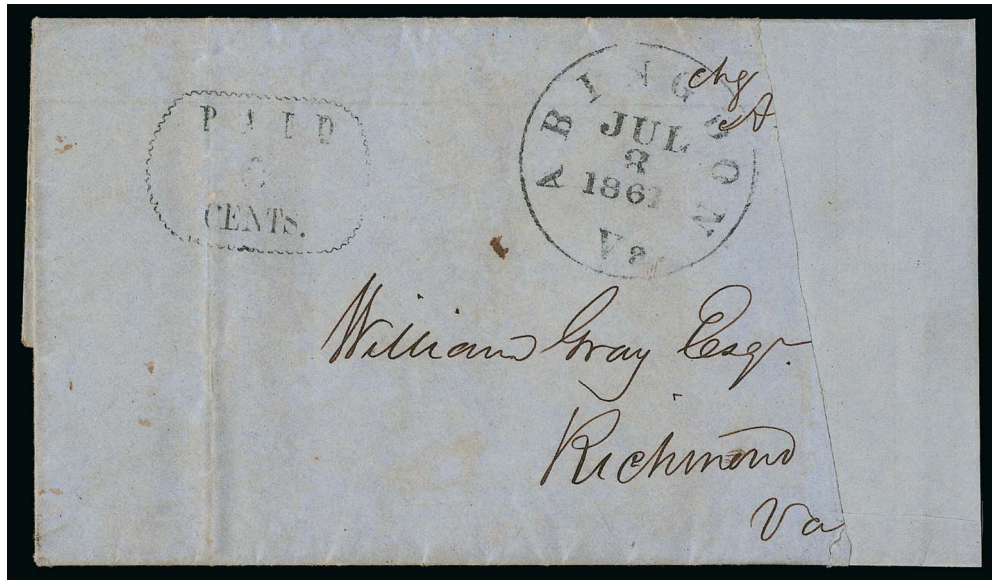 PAID
CENTS.
ABINGDON
JUL
186
Va
chg
William Gray Esqr.
Richmond
Va